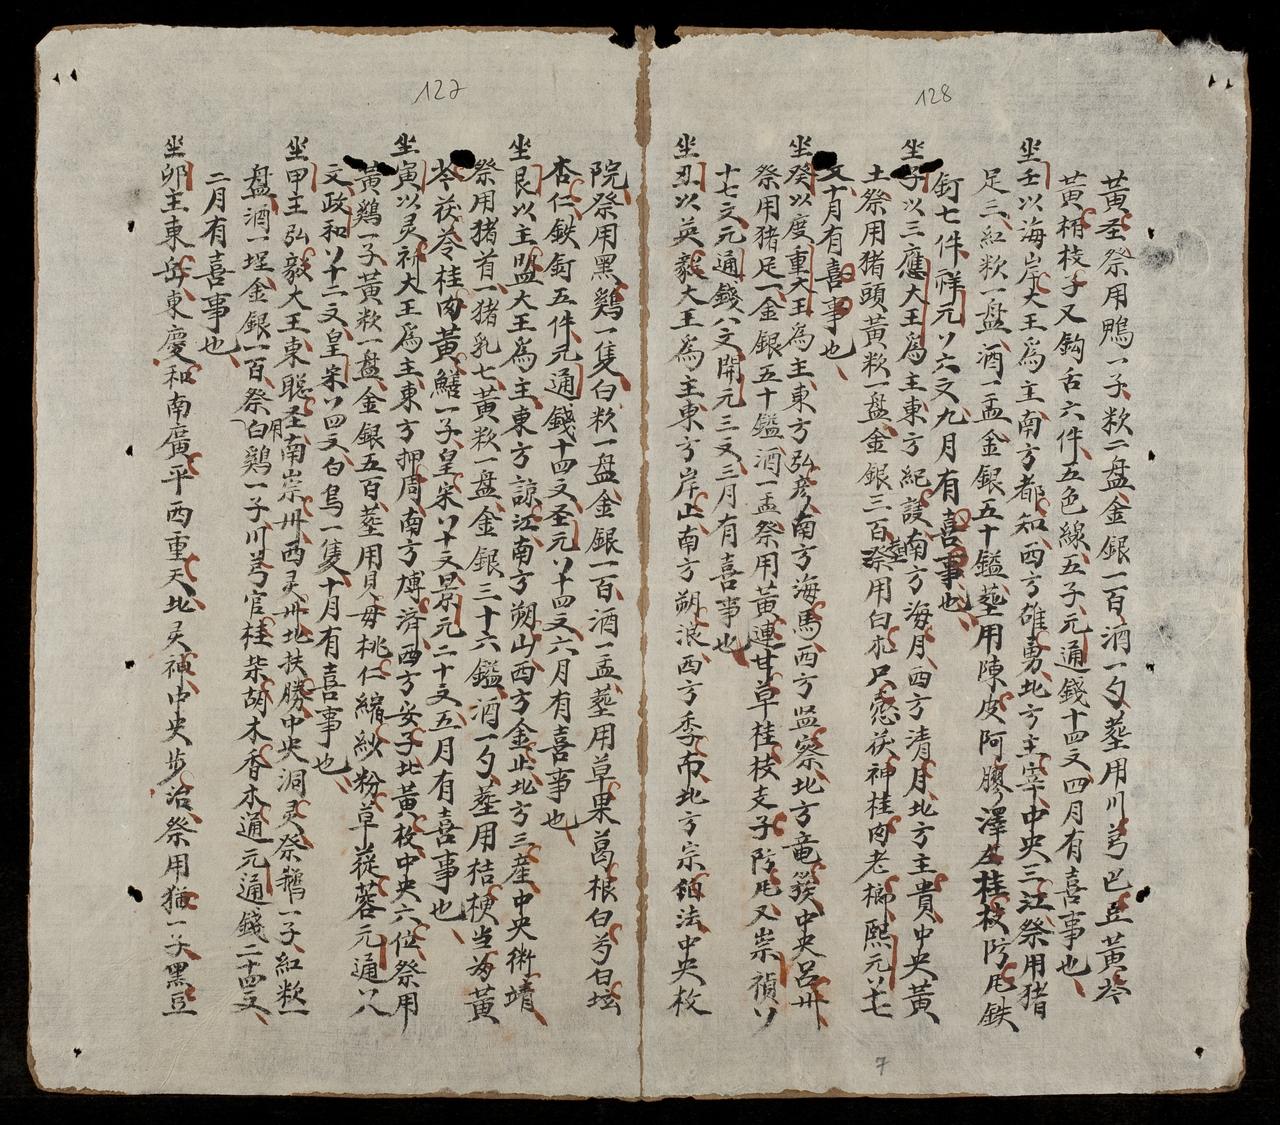 128
黃圣祭用鴨一子欶二盘金銀一百酒一勺塟用川芎巴豆黃芩
黃栢枝子又鈎舌六件五色線五子元通錢十四文四月有喜事也
坐壬以海岸大王爲主南方都知西方雄勇北方主宰中央三江祭用猪
足三紅欶一盘酒一盂金銀五十鎰塟用陳皮阿膠澤桂枝防風鉄
釘七件祥元丷六文九月有喜事也
坐子以三應大王爲主東方紀設南方海月西方清月北方主貴中央黃
土祭用猪頭黃欶一盘金銀三百塟用白朮只壳茯神桂肉老柳熙元丷七
文十月有喜事也
坐癸以度重大王爲主東方弘彦南方海馬西方监察北方竜中央呂卅
祭用猪足一金銀五十鎰酒一盂祭用黃連甘草桂枝支子防風又崇禎丷
十七文元通錢八文開元三文三月有喜事也
坐丑以英毅大王爲主東方岸止南方朔浪西方季布北方宗法中央枚
127
院祭用黑鷄一隻白欶一盘金銀一百酒一盂塟用草果葛根白芍白坛
杏仁鉄釘五件元通錢十四文圣元丷十四文六月有喜事也
坐艮以主盟大王爲主東方諒江南方朔山西方金止北方三産中央術靖
祭用猪首一猪乳七黃欶一盘金銀三十六鎰酒一勺塟用桔梗当為黃
芩茯苓桂肉黃鱔一子皇宋丷十文景元二十文五月有喜事也
坐寅以灵祈大王爲主東方押周南方博済西方安子北黃枚中央六位祭用
黃鷄一子黃欶一盘金銀五百塟用貝母桃仁縮紗粉草蓯蓉元通八
文政和丷十二文皇宋丷四文白烏一隻十月有喜事也
坐甲主弘毅大王東聪圣南崇卅西灵卅北扶勝中央洞灵祭一子紅欶一
盘酒一埕金銀一百祭用白鷄一子川芎官桂柴胡木香木通元通錢二十四文
二月有喜事也
坐卯主東岳東慶和南廣平西重天北灵神中央步治祭用猫一子黑豆
7